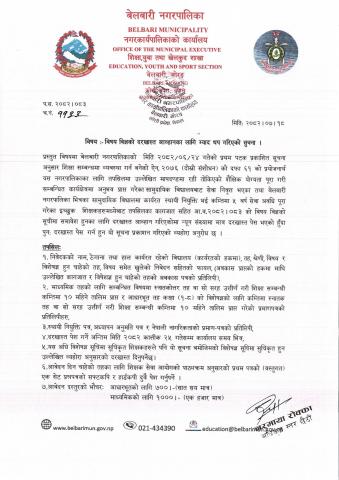 बेलबारी नगरपालिका
BELBARI MUNICIPALITY
नगरकार्यपालिकाको कार्यालय
OFFICE OF THE MUNICIPAL EXECUTIVE
शिक्षा,युवा तथा खेलकुद शाखा
EDUCATION, YOUTH AND SPORT SECTION
बेलबारी, मोरङ
प.सं. २०८२।०८३
च.नं. ११३३
मिति: २०८२।०७।१८
विषय :- विषय विज्ञको दरखास्त आव्हानका लागि म्याद थप गरिएको सूचना ।
प्रस्तुत विषयमा बेलबारी नगरपालिकाको मिति २०८२/०६/२४ गतेको प्रथम पटक प्रकाशित सूचना
अनुसार शिक्षा सम्बन्धमा व्यवस्था गर्न बनेको ऐन,२०७६ (दोस्रो संशोधन) को दफा ६१ को प्रयोजनार्थ
यस नगरपालिकाका लागि तपसिलमा उल्लेखित मापदण्डमा रही तोकिएको शैक्षिक योग्यता पूरा गरी
सम्बन्धित कार्यक्षेत्रमा अनुभव प्राप्त गरेका सामुदायिक विद्यालयबाट सेवा निवृत्त भएका तथा बेलबारी
नगरपालिका भित्रका सामुदायिक विद्यालयमा कार्यरत स्थायी नियुक्ति भई कम्तिमा ५ वर्ष सेवा अवधि पूरा
गरेका इच्छुक शिक्षकहरुमध्येबाट तपसिलका कागजात सहित आ.व.२०८२।०८३ को विषय विज्ञको
सूचीमा समावेश हुनका लागि दरखास्त आव्हान गरिएकोमा न्यून संख्यामा मात्र दरखास्त पेश भएको हुँदा
पुनः दरखास्त पेश गर्न हुन यो सूचना प्रकाशन गरिएको व्यहोरा अनुरोध छ ।
तपसिलः
१. निवेदकको नाम,ठेगाना तथा हाल कार्यरत रहेको विद्यालय (कार्यरतको हकमा), तह, श्रेणी, विषय र
विशेषज्ञ हुन चाहेको तह,विषय समेत खुलेको निवेदन सहितको फायल,(अवकास प्राप्तको हकमा माथि
उल्लेखित कागजात र विज्ञको हुन चाहेको तहको अवकास पत्रको प्रतिलिपी)
२. माध्यमिक तहको लागि सम्बन्धित विषयमा स्नातकोत्तर तह वा सो सरह उत्तीर्ण गरी शिक्षा सम्बन्धी
कम्तिमा १० महिने तालिम प्राप्त र आधारभूत तह कक्षा (१-८) को विशेषज्ञको लागि कम्तिमा स्नातक
तह वा सो सरह उत्तीर्ण गरी शिक्षा सम्बन्धी कम्तिमा १० महिने तालिम प्राप्त गरेको प्रमाणपत्रको
प्रतिलिपीहरु,
३.स्थायी नियुक्ति पत्र,अध्यापन अनुमति पत्र र नेपाली नागरिकताको प्रमाण-पत्रको प्रतिलिपी,
४.दरखास्त पेश गर्ने अन्तिम मिति २०८२ कात्तिक २५ गतेसम्म कार्यालय समय भित्र,
५.यस अघि विशेषज्ञ सूचिमा सूचिकृत शिक्षकहरुले पनि यो सूचना बमोजिमको विशेषज्ञ सूचिमा सूचिकृत हुन
उल्लेखित व्यहोरा अनुसारको दरखास्त दिनुपर्नेछ।
६.आवेदन दिन चाहेको तहका लागि शिक्षक सेवा आयोगको पाठ्यक्रम अनुसारको प्रथम पत्रको (वस्तुगत)
एक सेट प्रश्नपत्रको सफ्टकपि र हार्डकपी दुवै पेश गर्नुपर्ने ।
७.आवेदन दस्तुरको भौचरः आधारभूतको लागि ७००।- (सात सय मात्र)
माध्यमिकको लागि १०००।- (एक हजार मात्र)
www.belbarimun.gov.np
021-434390
education@belbarimun.gov